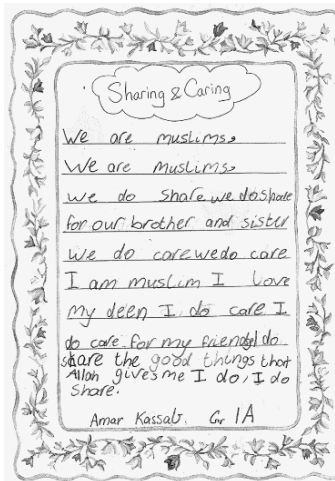 Sharing & Caring
We are muslims.
We are muslims.
we do share we do share
for our brother and sister
we do care we do care
I am muslim I love
my deen I do care I
do care for my friend I do
share the good things that
Allah gives me I do, I do
share.
Amar Kassab. Gr 1A